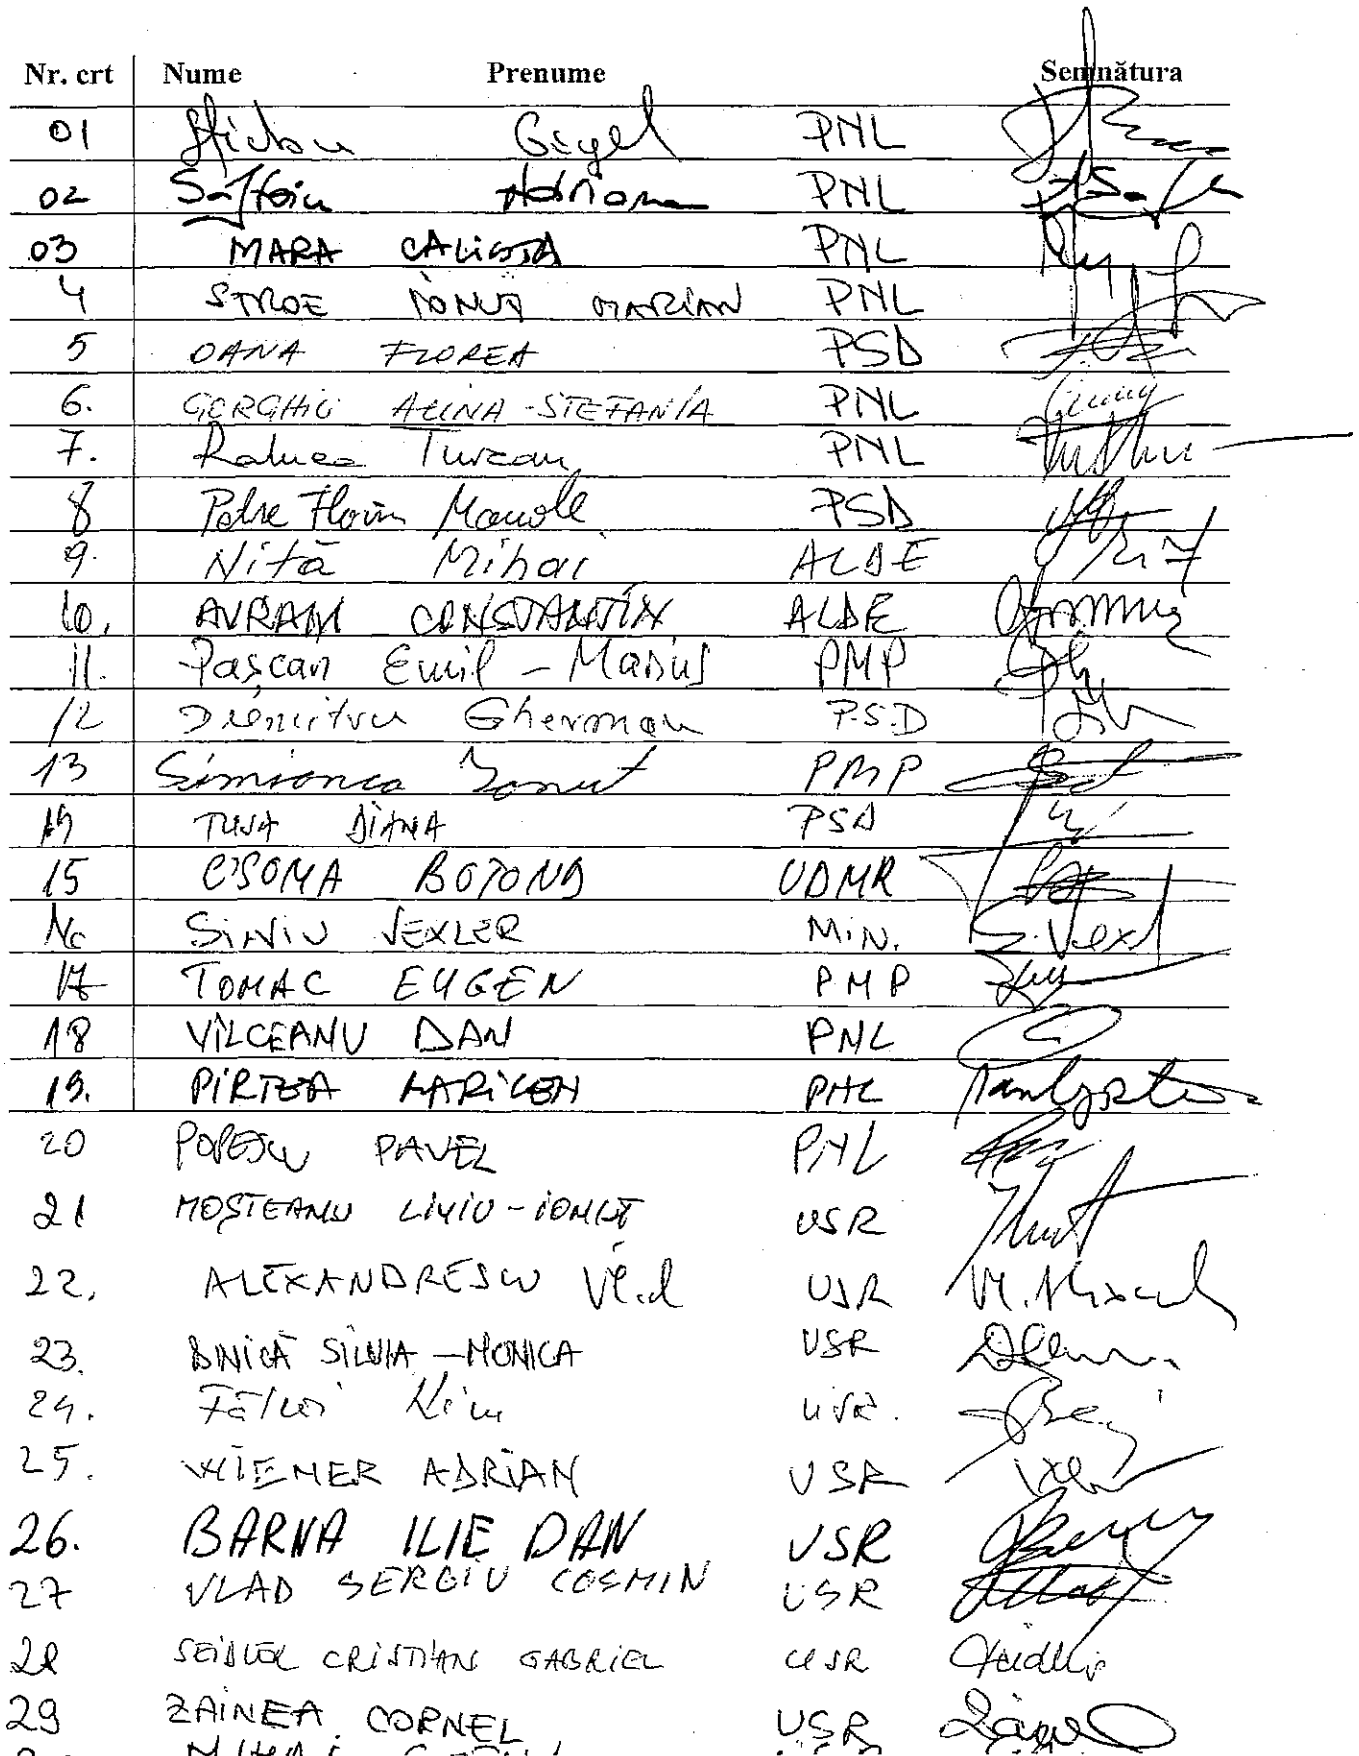 Nr. crt Nume Prenume Semnătura
01 Știrbu Gigel PNL
02 Săftoiu Adriana PNL
03 MARA CALISTA PNL
4 STROE IONUȚ MARIAN PNL
5 OANA FLOREA PSD
6. GORGHIU ALINA-STEFANIA PNL
7. Raluca Turcan PNL
8 Petre Florin Manole PSD
9. Niță Mihai ALDE
10. AVRAM CONSTANTIN ALDE
11. Pașcan Emil - Marius PMP
12 Dumitru Gherman P.S.D
13 Simionca Ionuț PMP
14 TUȘA DIANA PSD
15 CSOMA BOTOND UDMR
16 SILVIU VEXLER MIN. S. Vexl
17 TOMAC EUGEN PMP
18 VÎLCEANU DAN PNL
19. PIRTEA MARILEN PNL
20 POPESCU PAVEL PNL
21 MOȘTEANU LIVIU-IONUȚ USR
22. ALEXANDRESCU Vlad USR
23. DINICĂ SILVIA-MONICA USR
24. USR.
25. WIENER ADRIAN USR
26. BARNA ILIE DAN USR
27 VLAD SERGIU COSMIN USR
28 SEIDLER CRISTIAN GABRIEL USR
29 ZAINEA CORNEL USR